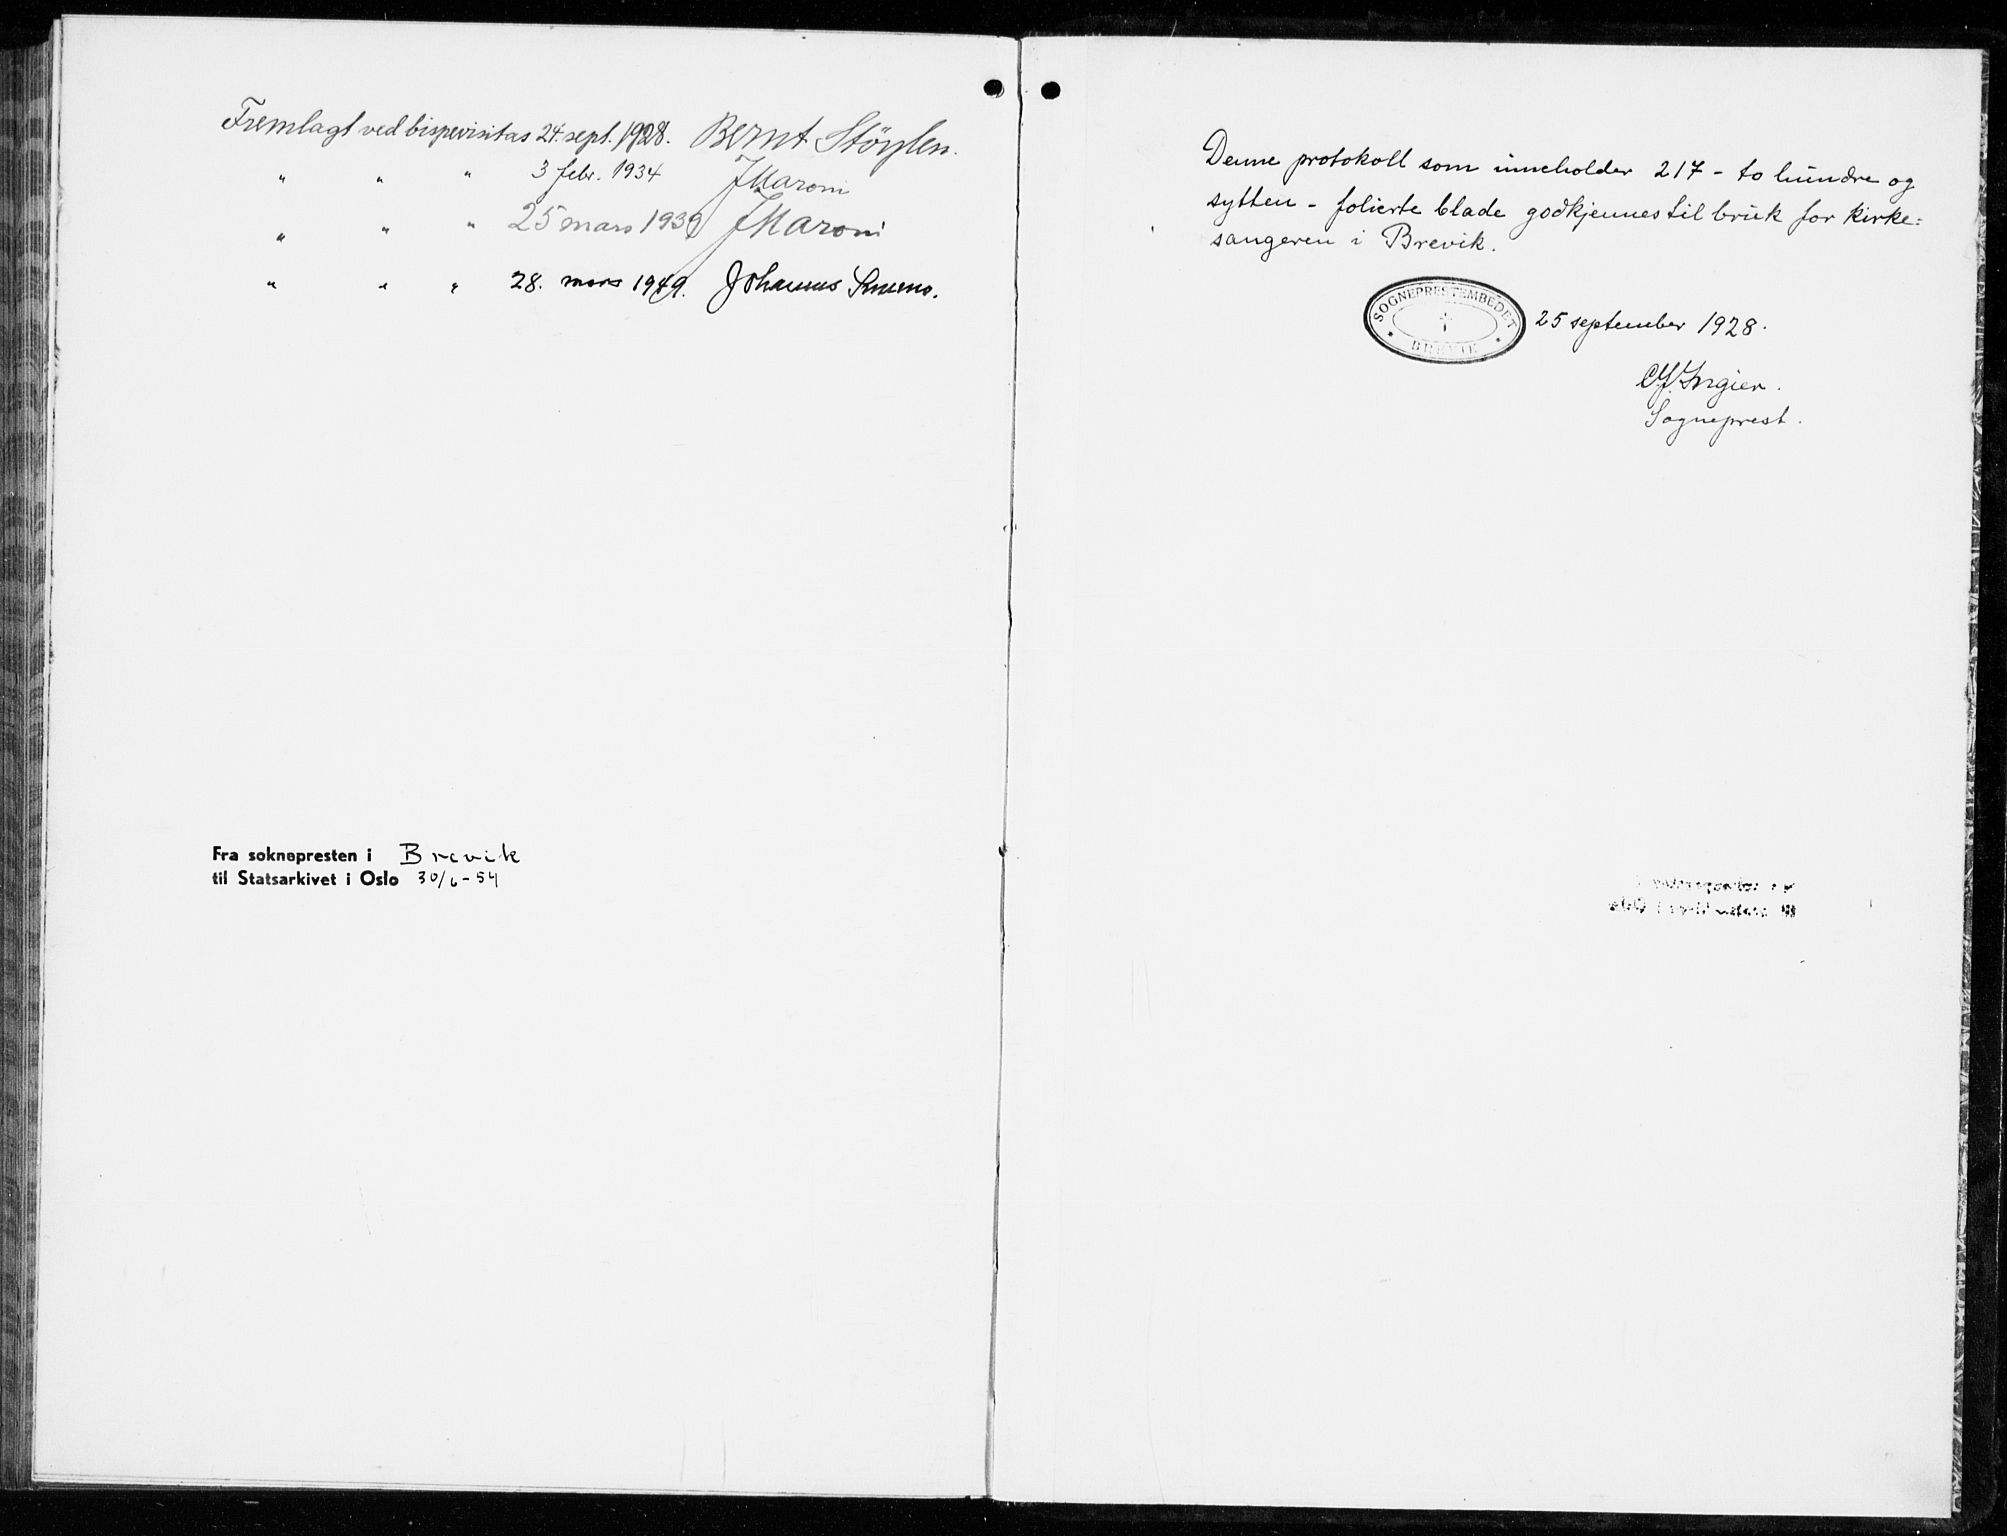 Fremlagt ved bispevisitas 24. sept. 1928. Bernt Støylen.
" " " 3 febr. 1934 J Maroni
" " " 25 mars 1939 J Maroni
" " " 28. mars 1949. Johannes Smemo.
Fra soknepresten i Brevik
til Statsarkivet i Oslo 30/6-54
Denne protokoll som inneholder 217 - to hundre og
sytten - folierte blade godkjennes til bruk for kirke=
sangeren i Brevik.
SOGNEPRESTEMBEDET
BREVIK
25 september 1928.
Ingier.
Sogneprest.